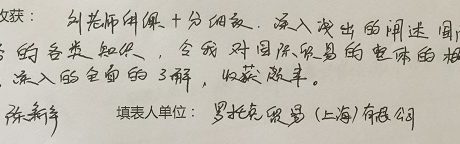 收获： 刘老师讲课十分细致，深入浅出的阐述国际
的各类知识，令我对国际贸易的整体的概
深入的全面的了解，收获颇丰。
陈新年 填表人单位：罗托克贸易（上海）有限公司